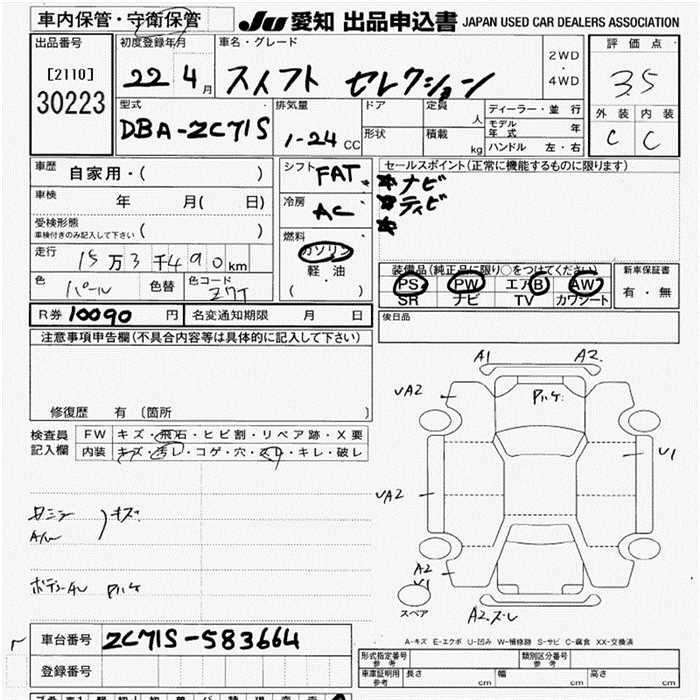 車内保管・守衛保管 JU 愛知 出品申込書 JAPAN USED CAR DEALERS ASSOCIATION
出品番号 初度登録年月 車名・グレード 2WD・4WD 評価点
[2110] 30223 22 4月 スイフト セレクション 3.5
型式 排気量 ドア 定員 人 ディーラー・並行 外装 内装
DBA-ZC71S 1-24 CC 形状 積載 kg モデル年式 年 C C
ハンドル 左・右
車歴 自家用・( ) シフト FAT セールスポイント(正常に機能するものに限ります)
車検 年 月( 日) 冷房 AC ナビ
受検形態 車検付きのみ記入して下さい ( ) 燃料 ガソリン・軽油・( )
走行 15万3千490km 装備品(純正品に限り○をつけてください) 新車保証書
色 パール 色替 色コード ZYT PS PW エアB AW 有・無
SR ナビ TV カワシート
R券 10090円 名変通知期限 月 日 後日品
注意事項申告欄(不具合内容等は具体的に記入して下さい)
修復歴 有 〔箇所 〕
検査員記入欄 FW キズ・飛石・ヒビ割・リペア跡・X要
内装 キズ・汚レ・コゲ・穴・スレ・キレ・破レ
キズ
A1 A2
UA2 U1
UA2
A2 U1
スペア A2.ズレ
A-キズ E-エクボ U-凹み W-補修跡 S-サビ C-腐食 XX-交換済
車台番号 ZC71S-583664
登録番号
形式指定番号 参考 類別区分番号 参考
車庫証明用 参考 長さ cm 幅 cm 高さ cm